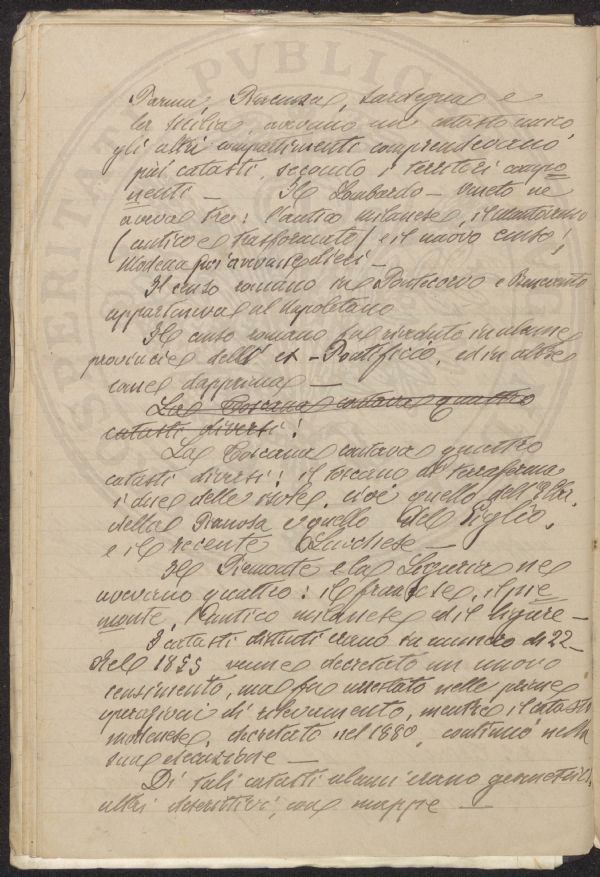 Parma, Piacenza, Sardegna e
la Sicilia, avevano un catasto unico,
gli altri compartimenti comprendevano
più catasti, secondo i territori compo
nenti — Il Lombardo-Veneto ne
aveva tre: l'antico milanese, il mantovano
(antico e trasformato) e il nuovo censo;
Modena poi aveva dieci —
Il censo romano in Pontecorvo e Benevento
apparteneva al Napoletano
Il censo romano fu riveduto in alcune
provincie dell' ex-Pontificio, ed in altre
come dapprima —
La Toscana contava quattro
catasti diversi!
La Toscana contava quattro
catasti diversi: il toscano di terraferma
i due delle isole, cioè quello dell'Elba,
della Pianosa e quello del Giglio,
e il recente Lucchese —
Il Piemonte e la Liguria ne
avevano quattro: il francese, il pie
monte, l'antico milanese ed il ligure —
I catasti distinti erano in numero di 22 —
Nel 1855 venne decretato un nuovo
censimento, ma fu arrestato nelle prime
operazioni di rilevamento, mentre il catasto
modenese, decretato nel 1880, continuò nella
sua esecuzione —
Di tali catasti alcuni erano geometrici,
altri descrittivi, con mappe —
PERITAT
PVBLIC